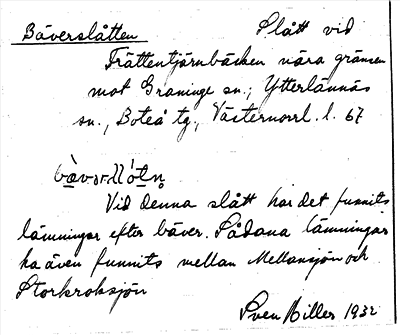 Bäverslåtten Slått vid
Trättentjärnbäcken nära gränsen
mot Graninge sn.; Ytterlännäs
sn., Boteå tg., Västernorrl. l. 67
Vid denna slått har det funnits
lämningar efter bäver. Sådana lämningar
ha även funnits mellan Mellansjön och
Storkroksjön
Sven Hiller 1932